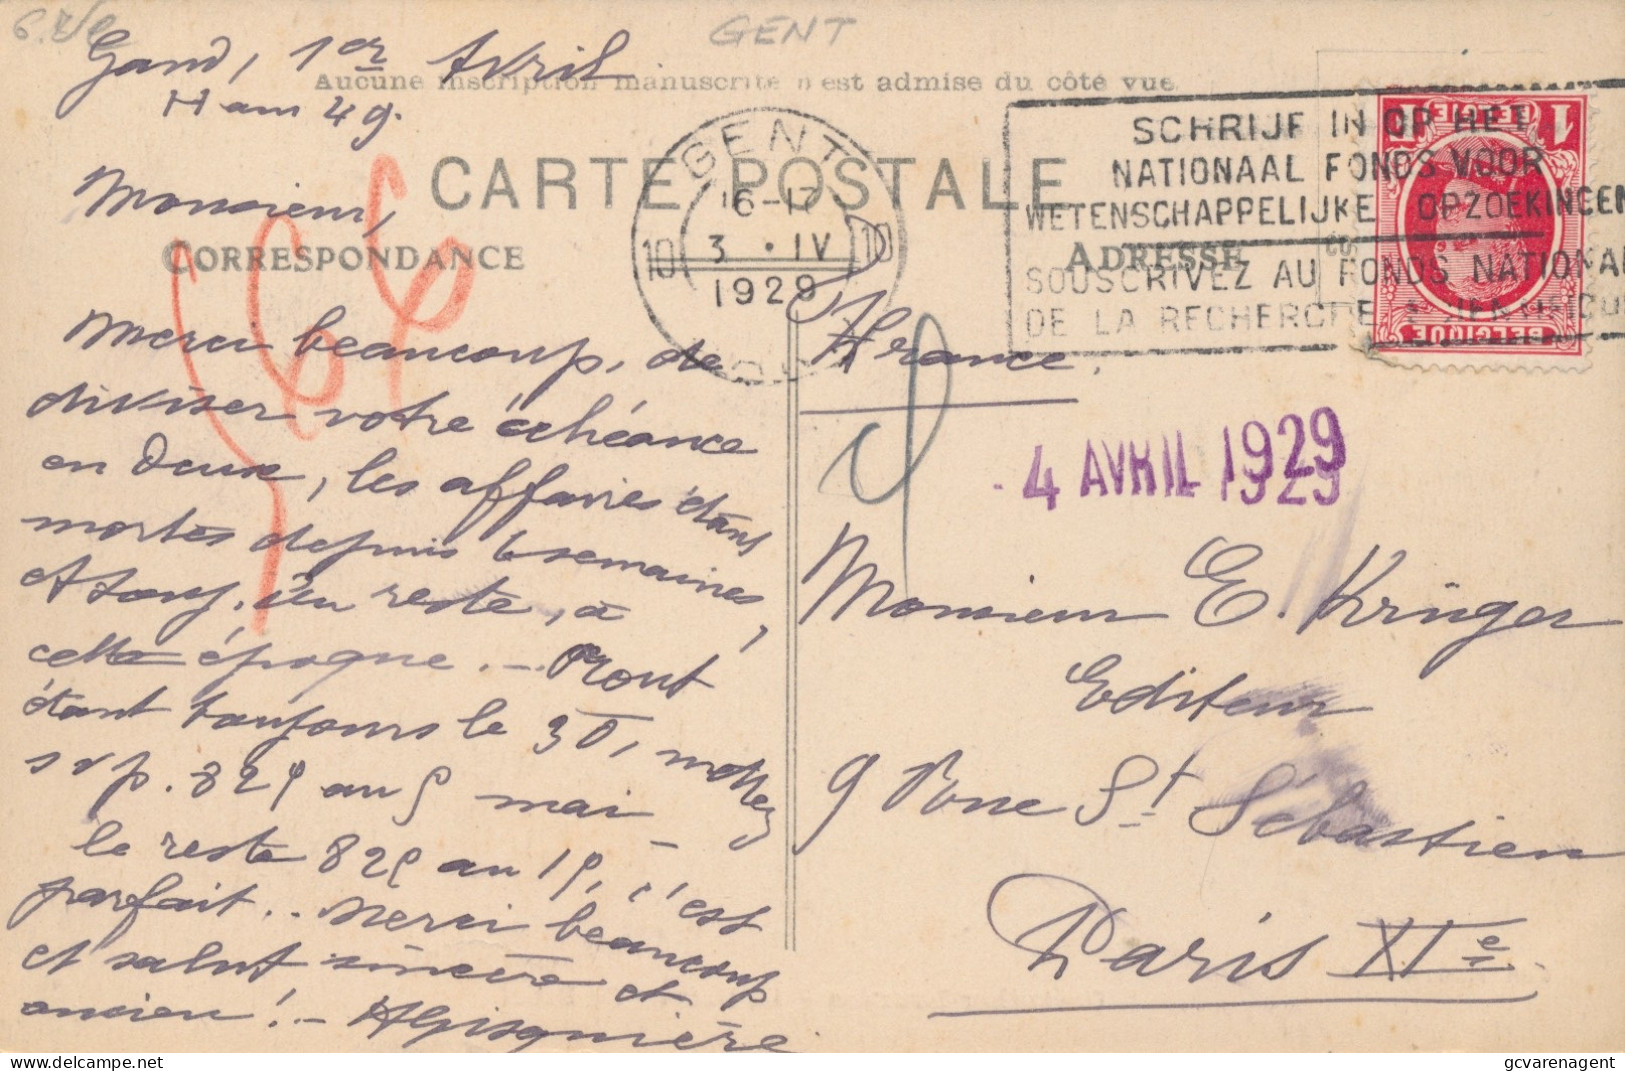 GENT
Gand, 1er Avril
Aucune inscription manuscrite n'est admise du côté vue
Ham 49.
CARTE POSTALE
Monsieur,
CORRESPONDANCE
ADRESSE
GENT
16-17
10 3 • IV 10
1929
SCHRIJF IN OP HET
NATIONAAL FONDS VOOR
WETENSCHAPPELIJKE OPZOEKINGEN
SOUSCRIVEZ AU FONDS NATIONAL
DE LA RECHERCHE SCIENTIFIQUE
1 BELGIË 1
BELGIQUE
Merci beaucoup, de
diviser votre échéance
en deux, les affaires étans
mortes depuis 6 semaines,
et à cette époque. - Pront
étant toujours le 30, mettez
svp. 825 au 5 mai -
le reste 825 au 15, c'est
parfait.. Merci beaucoup
et salut sincère et
ancien! -
France.
4 AVRIL 1929
Monsieur E. Krüger
Editeur
9 Rue St. Sébastien
Paris XIe
gcvarenagent
https://www.delcampe.net